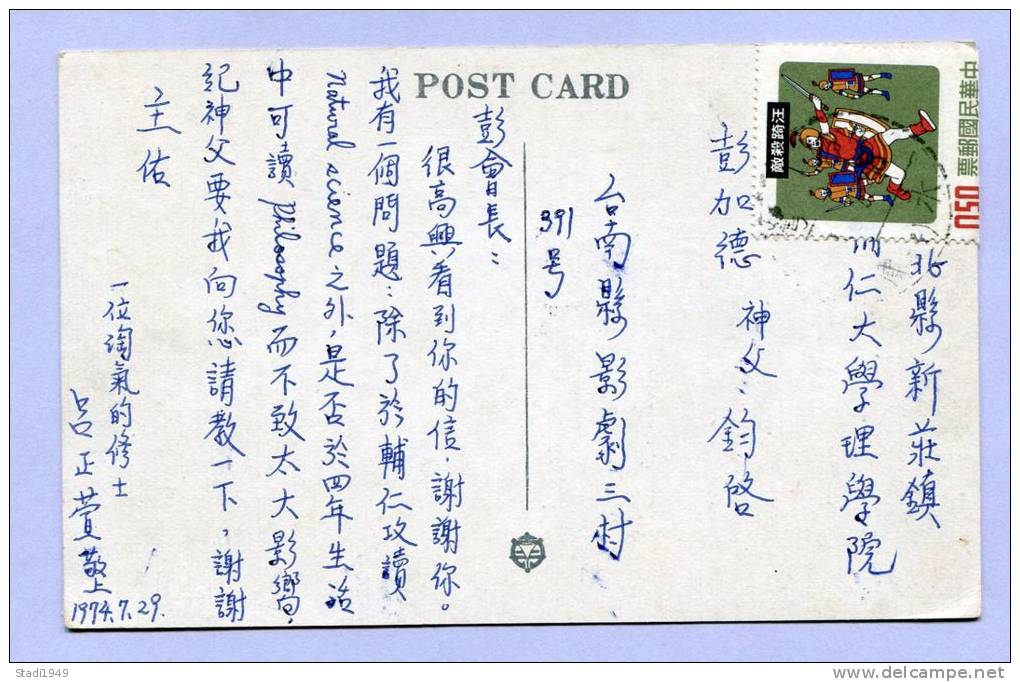 POST CARD
中華民國郵票
050
汪踦殺敵
北縣新莊鎮
仁大學理學院
彭加德 神父：鈞啓
台南縣影劇三村
391号
彭會長：
很高興看到你的信，謝謝你。
我有一個問題：除了於輔仁攻讀
natural science 之外，是否於四年生活
中可讀 philosophy 而不致太大影響，
紀神父要我向您請教一下，謝謝
主佑
一位淘氣的修士
呂正萱敬上
1974.7.29.
Stadi1949
delcampe.net